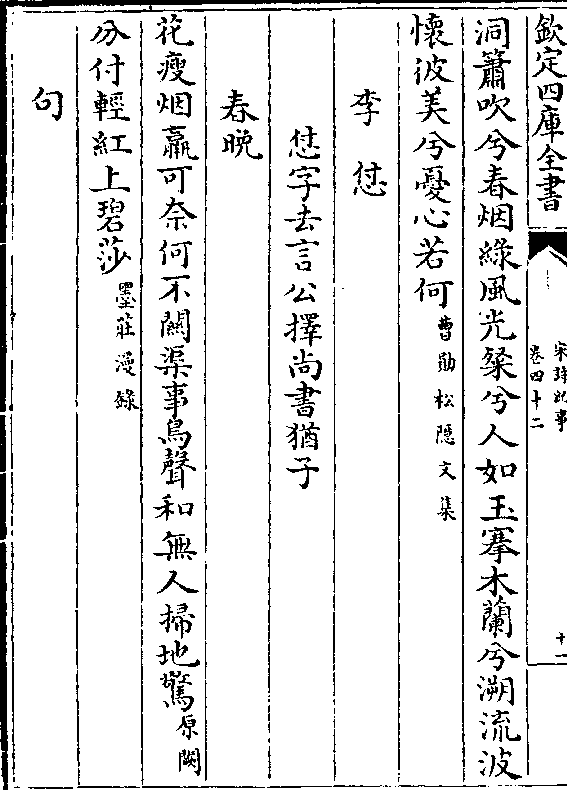 欽定四庫全書
宋詩紀事
卷四十二
十一
洞簫吹兮春烟綠風光粲兮人如玉搴木蘭兮溯流波
懷彼美兮憂心若何曹勛松隱文集
李愆
愆字去言公擇尚書猶子
春晚
花瘦烟羸可奈何不關渠事鳥聲和無人掃地驚原闕
分付輕紅上碧莎墨莊漫錄
句